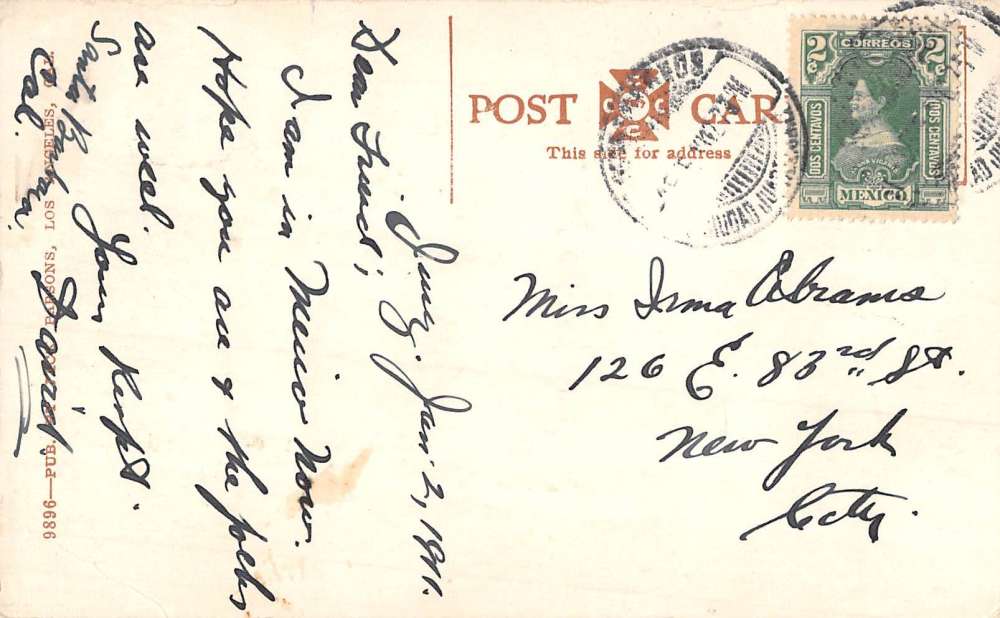 POST CARD
This side for address
2 CORREOS 2
DOS CENTAVOS
DOS CENTAVOS
MEXICO
Jan. 2, 1911.
Dear Friend;
I am in Mexico now.
Hope you are & the folks
are well.
David
Santa Barbara,
Cal.
Miss Irma Abrams
126 E. 83rd St.
New York
City.
9896—PUB. PARSONS, LOS ANGELES, CAL.